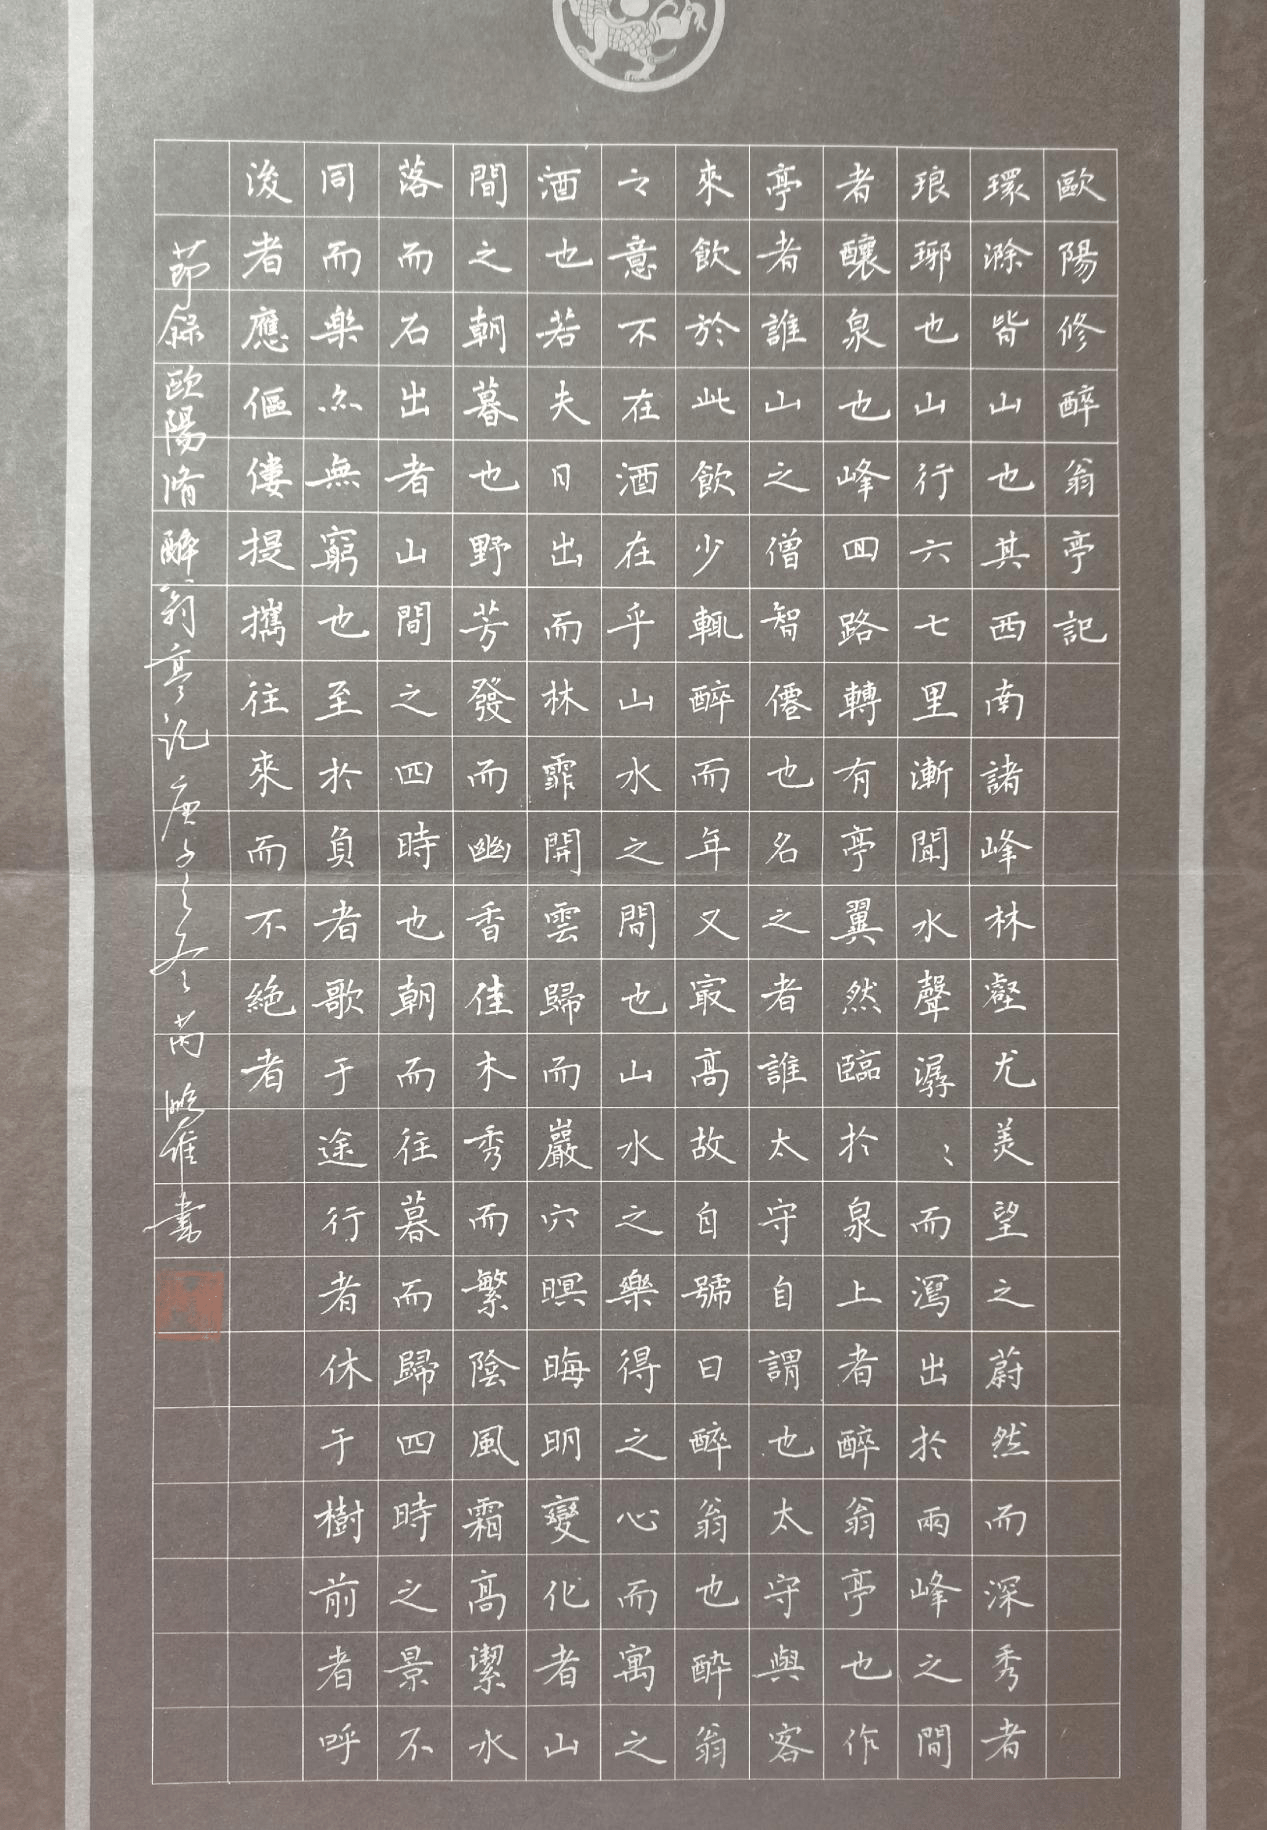 歐陽修醉翁亭記
環滁皆山也其西南諸峰林壑尤美望之蔚然而深秀者
琅琊也山行六七里漸聞水聲潺〻而瀉出於兩峰之間
者釀泉也峰回路轉有亭翼然臨於泉上者醉翁亭也作
亭者誰山之僧智僊也名之者誰太守自謂也太守與客
來飲於此飲少輒醉而年又㝡高故自號曰醉翁也醉翁
之意不在酒在乎山水之間也山水之樂得之心而寓之
酒也若夫日出而林霏開雲歸而巖穴暝晦明變化者山
間之朝暮也野芳發而幽香佳木秀而繁陰風霜高潔水
落而石出者山間之四時也朝而往暮而歸四時之景不
同而樂亦無窮也至於負者歌于途行者休于樹前者呼
後者應傴僂提攜往來而不絕者
節錄歐陽脩醉翁亭記庚子之冬芮 雄書